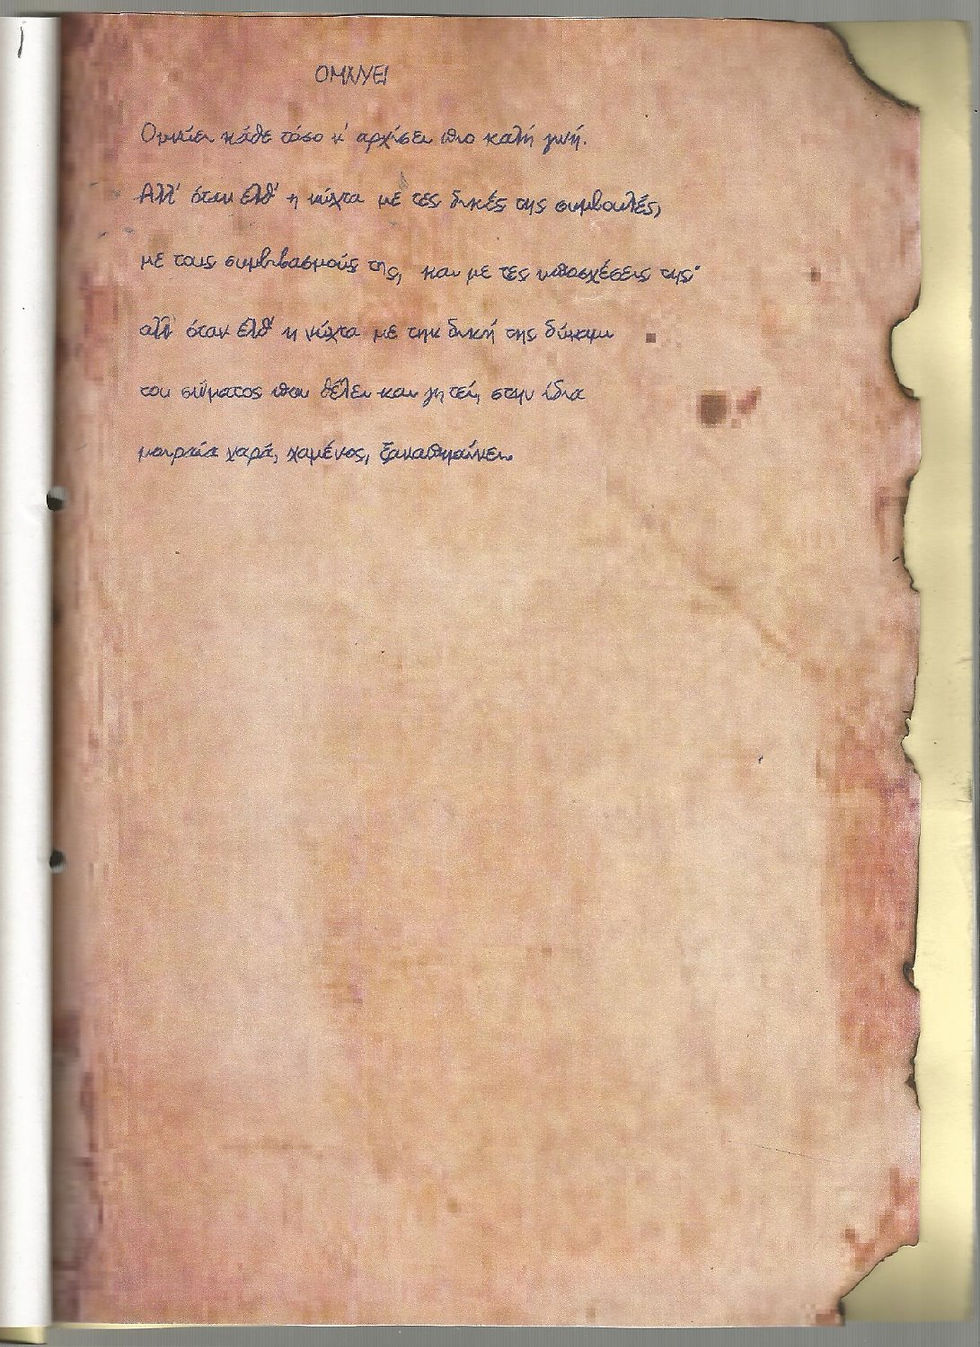 ΟΜΝΥΕΙ
Ομνύει κάθε τόσο ν' αρχίσει πιο καλή ζωή.
Αλλ' όταν έλθ' η νύχτα με τες δικές της συμβουλές,
με τους συμβιβασμούς της, και με τες υποσχέσεις της·
αλλ' όταν έλθ' η νύχτα με την δική της δύναμι
του σώματος που θέλει και ζητεί, στην ίδια
μοιραία χαρά, χαμένος, ξαναπηαίνει.